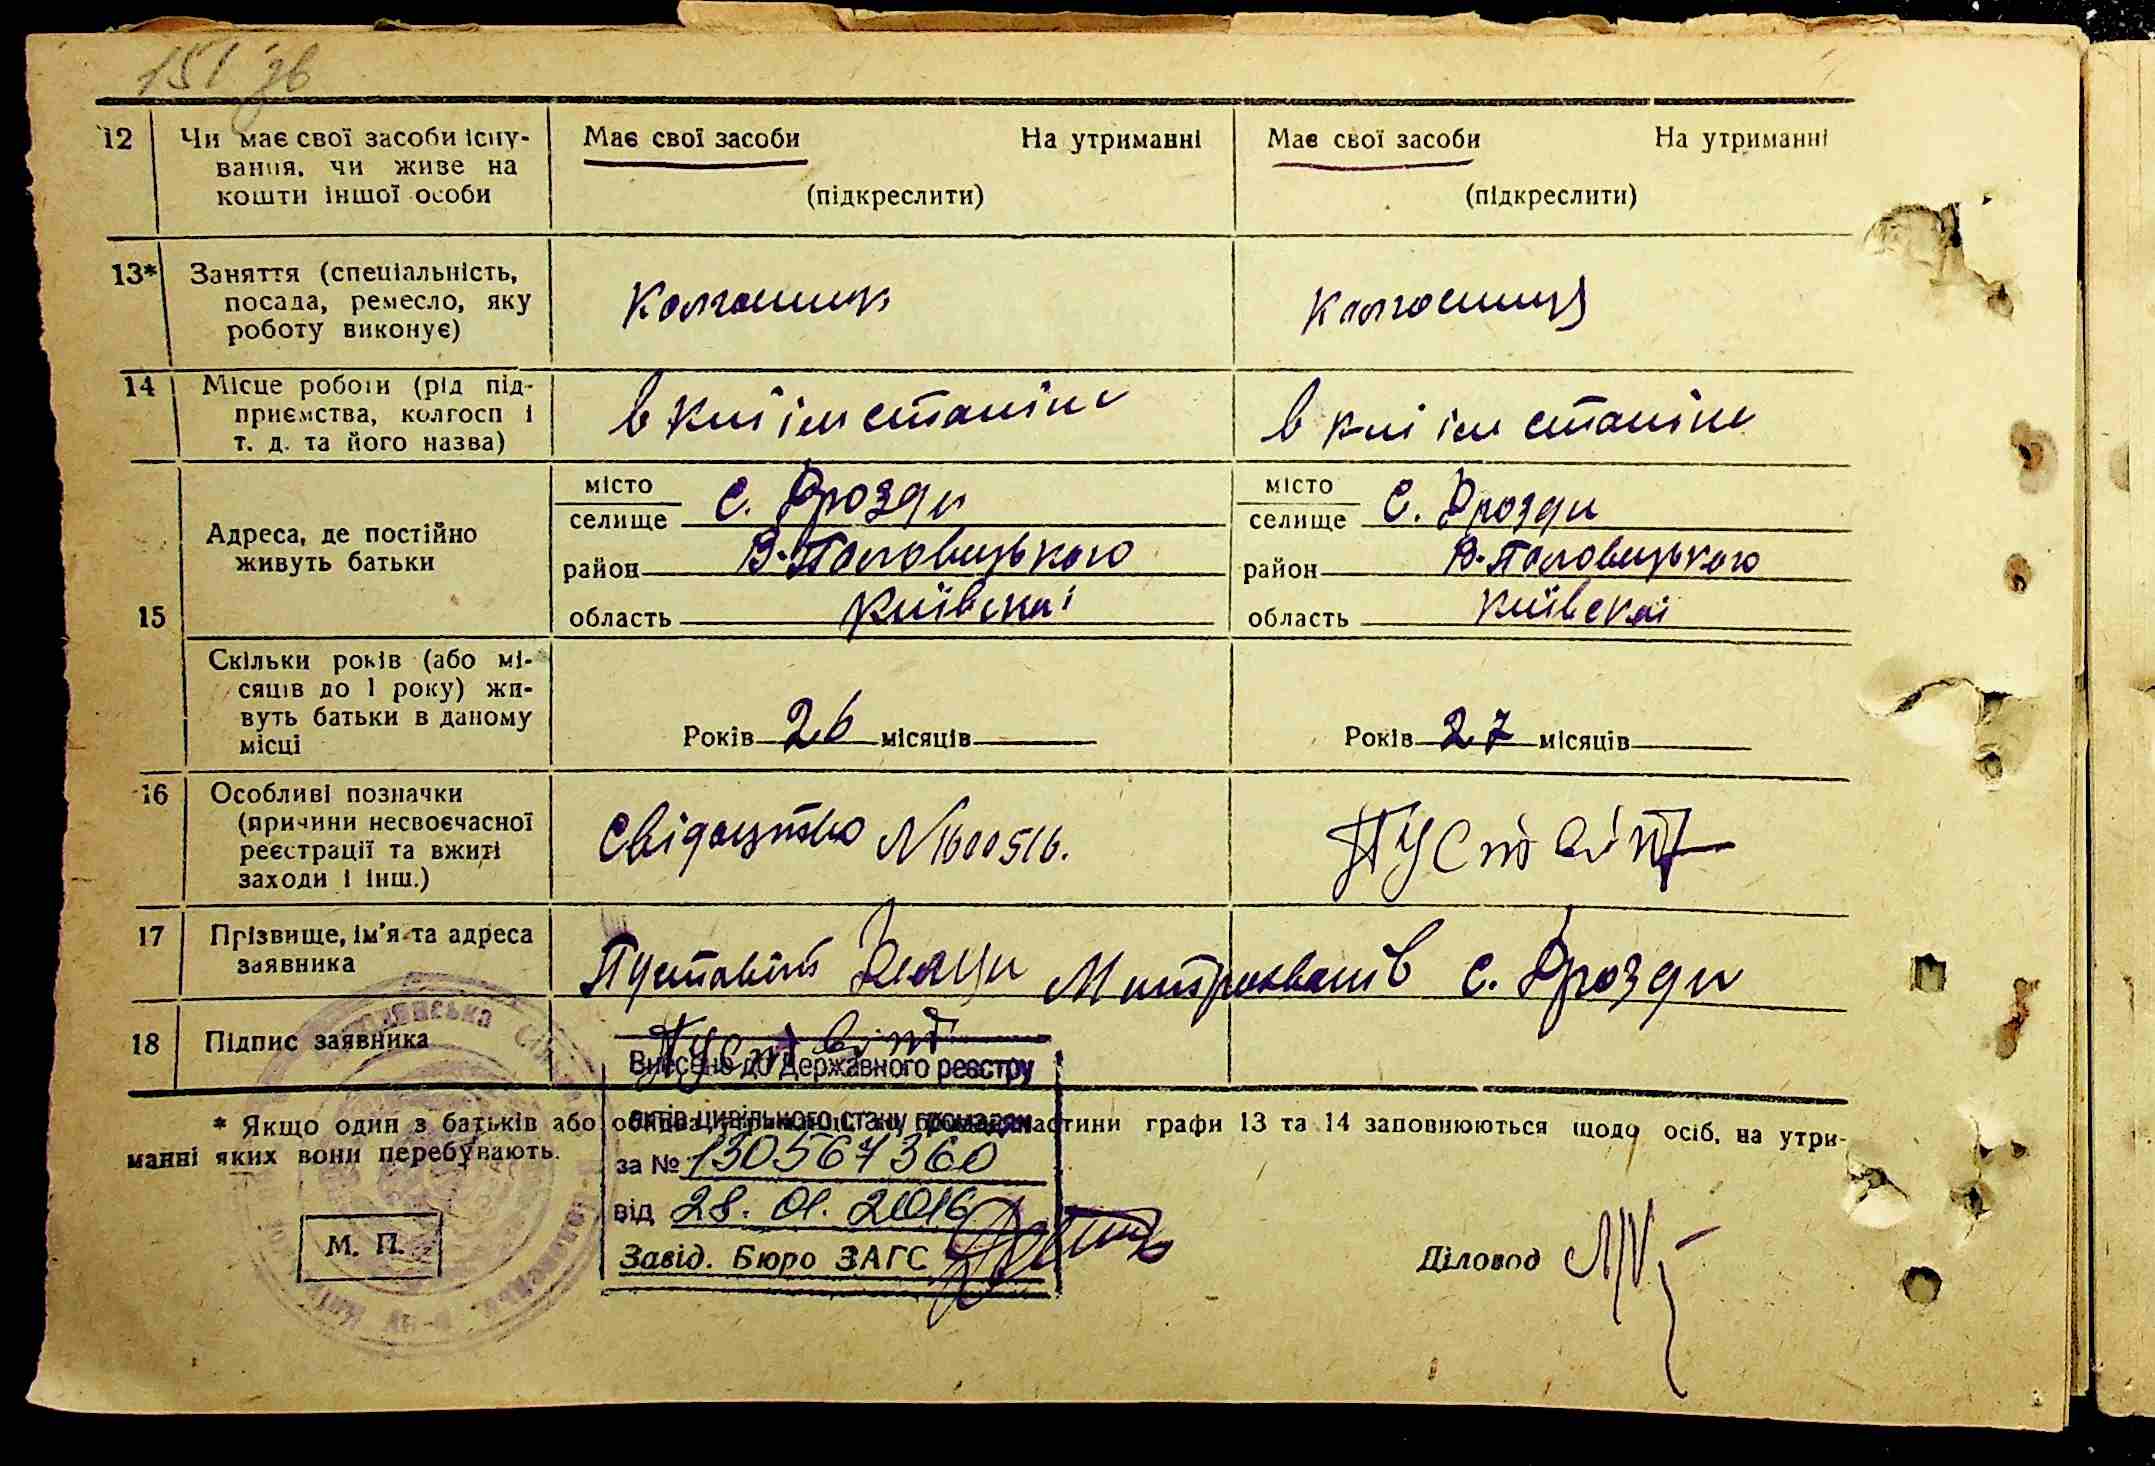 151 зв
12 Чи має свої засоби існу-
вання, чи живе на
кошти іншої особи
Має свої засоби На утриманні
(підкреслити)
Має свої засоби На утриманні
(підкреслити)
13* Заняття (спеціальність,
посада, ремесло, яку
роботу виконує)
колгоспник
колгоспниця
14 Місце роботи (рід під-
приємства, колгосп і
т. д. та його назва)
в к-пі ім сталіна
в к-пі ім сталіна
15 Адреса, де постійно
живуть батьки
місто
селище с. Дрозди
район В-Половецького
область Київської
місто
селище С. Дрозди
район В-Половецького
область Київської
Скільки років (або мі-
сяців до 1 року) жи-
вуть батьки в даному
місці
Років 26 місяців
Років 27 місяців
16 Особливі позначки
(причини несвоєчасної
реєстрації та вжиті
заходи і інш.)
Свідоцтво N 1600516.
Пустовіт
17 Прізвище, ім'я та адреса
заявника
Пустовіт Митрофанів с. Дрозди
18 Підпис заявника
Пустовіт
Внесено до Державного реєстру
актів цивільного стану громадян
за № 130567360
від 28. 01. 2016
Завід. Бюро ЗАГС
* Якщо один з батьків або
тини графи 13 та 14 заповнюються щодо осіб, на утри-
манні яких вони перебувають.
М. П.
Діловод